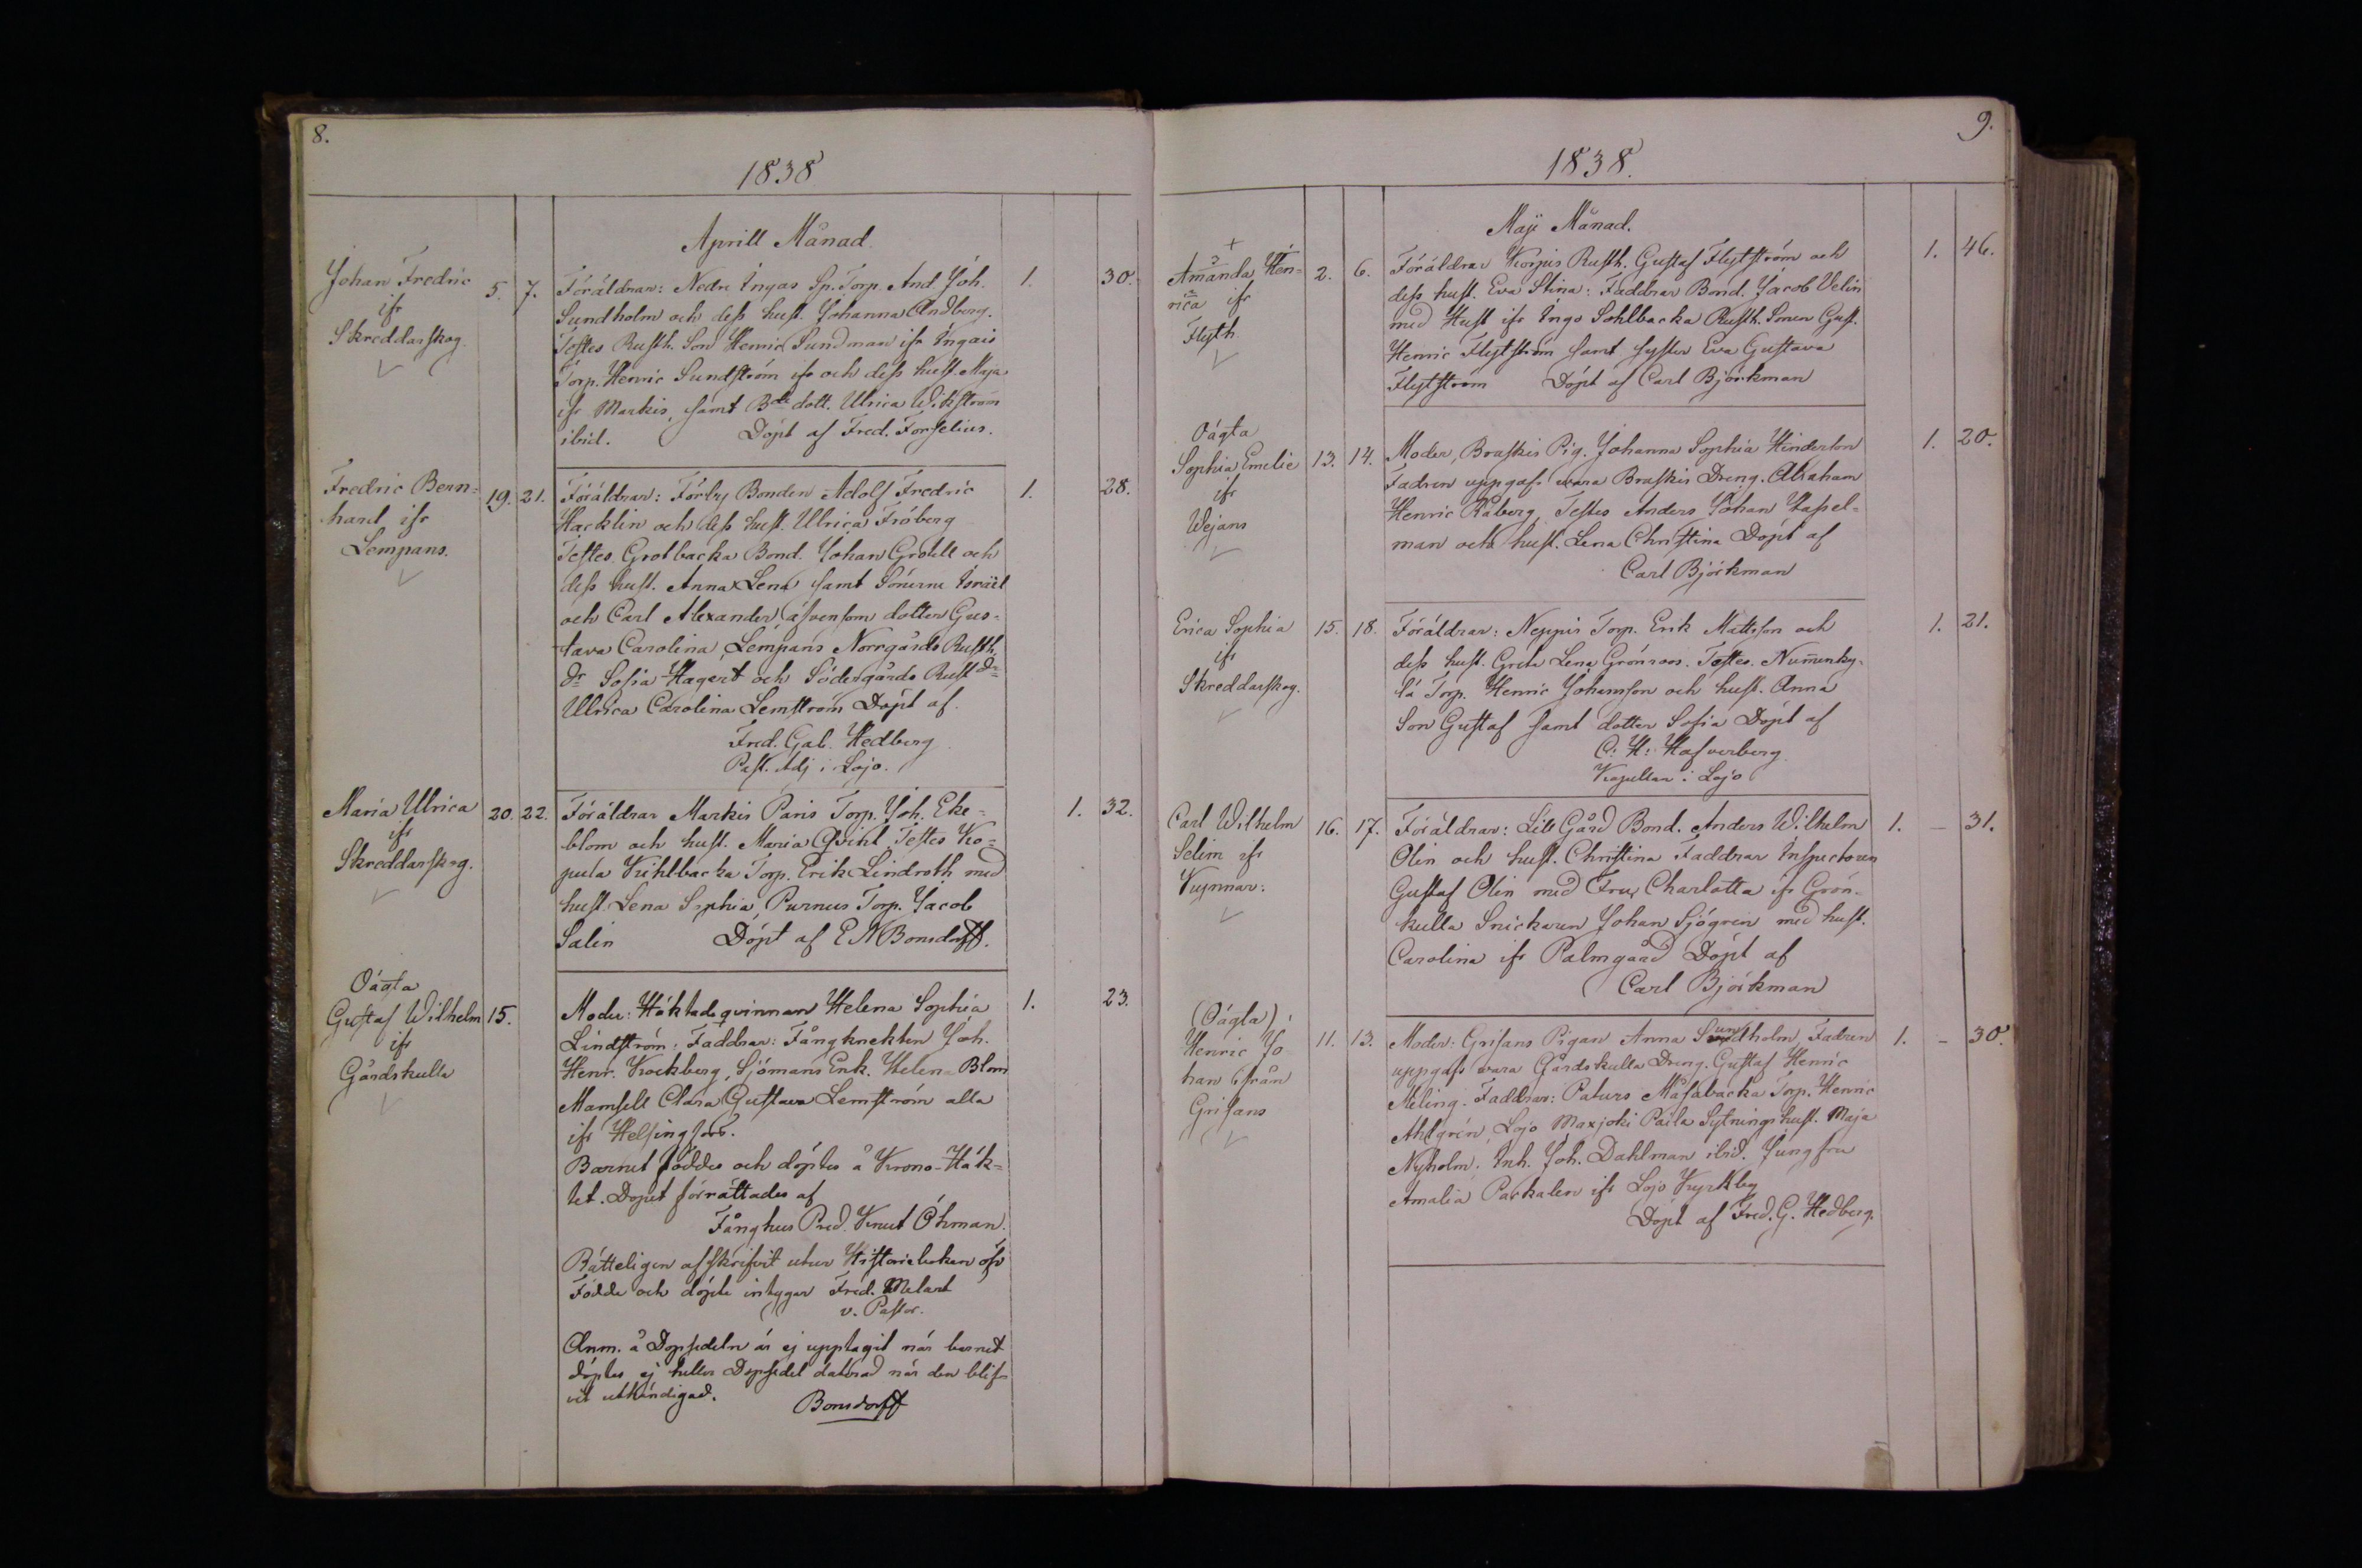 8.
1838
Aprill Månad.
Johan Fredric
ifr
Skreddarskog.
5. 7.
Föräldrar: Nedre Ingas Sp. Torp. And. Joh.
Sundholm och dess hust. Johanna Andberg.
Testes Rusth. Son Henric Sundman ifr Ingais
Torp. Henric Sundström ifr och dess hust. Maja
ifr Markis, samt Bde dott. Ulrica Wikström
ibid. Döpt af Fred. Forselius.
1. 30.
Fredric Bern=
hard ifr
Lempans.
19. 21.
Föräldrar: Förby Bonden Adolf Fredric
Hacklin och dess hust. Ulrica Fröberg
Testes Grotbacka Bond. Johan Grotell och
dess hust. Anna Lena samt Sönerne Israël
och Carl Alexander, äfvensom dotter Gus=
tava Carolina, Lempans Norrgårds Rusth.
dr Sofia Hagert och Södergårds Rust dr
Ulrica Carolina Lemström Döpt af
Fred. Gab. Hedberg
Past. Adj i Lojo.
1. 28.
Maria Ulrica
ifr
Skreddarskog.
20. 22.
Föräldrar Markis Paris Torp. Joh. Eke=
blom och hust. Maria Qvint Testes Ko=
pula Kihlbacka Torp. Erik Lindroth med
hust. Lena Sophia, Purnus Torp. Jacob
Salin Döpt af E N Bonsdorff.
1. 32.
Oägta
Gustaf Wilhelm
ifr
Gårdskulla
15.
Moder: Häktade qvinnan Helena Sophia
Lindström: Faddrar: Fångknekten Joh.
Henr. Kockberg, Sjömans Enk. Helena Blom
Mamsell Clara Gustava Lemström alla
ifr Helsingfors.
Barnet föddes och döptes å Krono-Häk=
tet. Dopet förrättades af
Fånghus Pred. Knut Öhman.
Rätteligen afskrifvit utur Historieboken öfr
Födde och döpte intygar Fred. Melart
v. Pastor.
Anm. å Dopsedeln är ej upptagit när barnet
döptes ej heller Dopsedel daterad när den blif=
vit uthändigad.
Bonsdorff
1. 23.
9.
1838.
Maji Månad.
+
Amanda Hen=
rica ifr
Flyth
2. 6.
Föräldrar Korpis Rusth. Gustaf Flytström och
dess hust. Eva Stina: Faddrar Bond. Jacob Velin
med Hust ifr Ingo Sohlbacka Rusth. Sonen Gust.
Henric Flytström samt syster Eva Gustava
Flytström Döpt af Carl Björkman
1. 46.
Oägta
Sophia Emelie
ifr
Wejans
13. 14.
Moder, Braskis Pig. Johanna Sophia Hinderton
Fadren uppgafs vara Braskis Dreng. Abraham
Henric Råberg, Testes Anders Johan Hassel=
man och hust. Lena Christina Döpt af
Carl Björkman
1. 20.
Erica Sophia
ifr
Skreddarskog.
15. 18.
Föräldrar: Neppis Torp. Erik Mattsson och
dess hust. Greta Lena Grönroos. Testes. Nummenky=
lä Torp. Henric Johansson och hust. Anna
Son Gustaf samt dotter Sofia Döpt af
C: H: Hafverberg
Kapellan i Lojo
1. 21.
Carl Wilhelm
Selim ifr
Kynnar:
16. 17.
Föräldrar: Lill Gård Bond. Anders Wilhelm
Olin och hust. Christina Faddrar Inspectoren
Gustaf Olin med Fru Charlotta ifr Grön=
kulla Snickaren Johan Sjögren med hust.
Carolina ifr Palmgård Döpt af
Carl Björkman
1. – 31.
(Oägta).
Henric Jo
han ifrån
Grisans
11. 13.
Moder: Grisans Pigan Anna Sundholm, Fadren
uppgafs vara Gårdskulla Dreng. Gustaf Henric
Meling. Faddrar: Paturs Måsabacka Torp. Henric
Ahlgrén, Lojo Maxjoki Paila Sytnings hust. Maja
Nyholm. Inh. Joh. Dahlman ibid. Jungfru
Amalia Parkalen ifr Lojo Kyrkby
Döpt af Fred. G. Hedberg.
1. – 30.